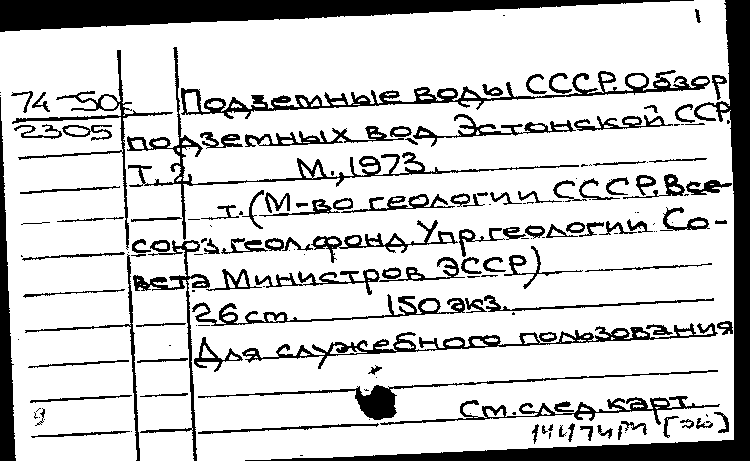 1
74-50c
2305
Подземные воды СССР. Обзор
подземных вод Эстонской ССР.
Т. 2. М., 1973.
т. (М-во геологии СССР. Все-
союз. геол. фонд. Упр. геологии Со-
вета Министров ЭССР)
26 см. 150 экз.
Для служебного пользования
См. след. карт.
9